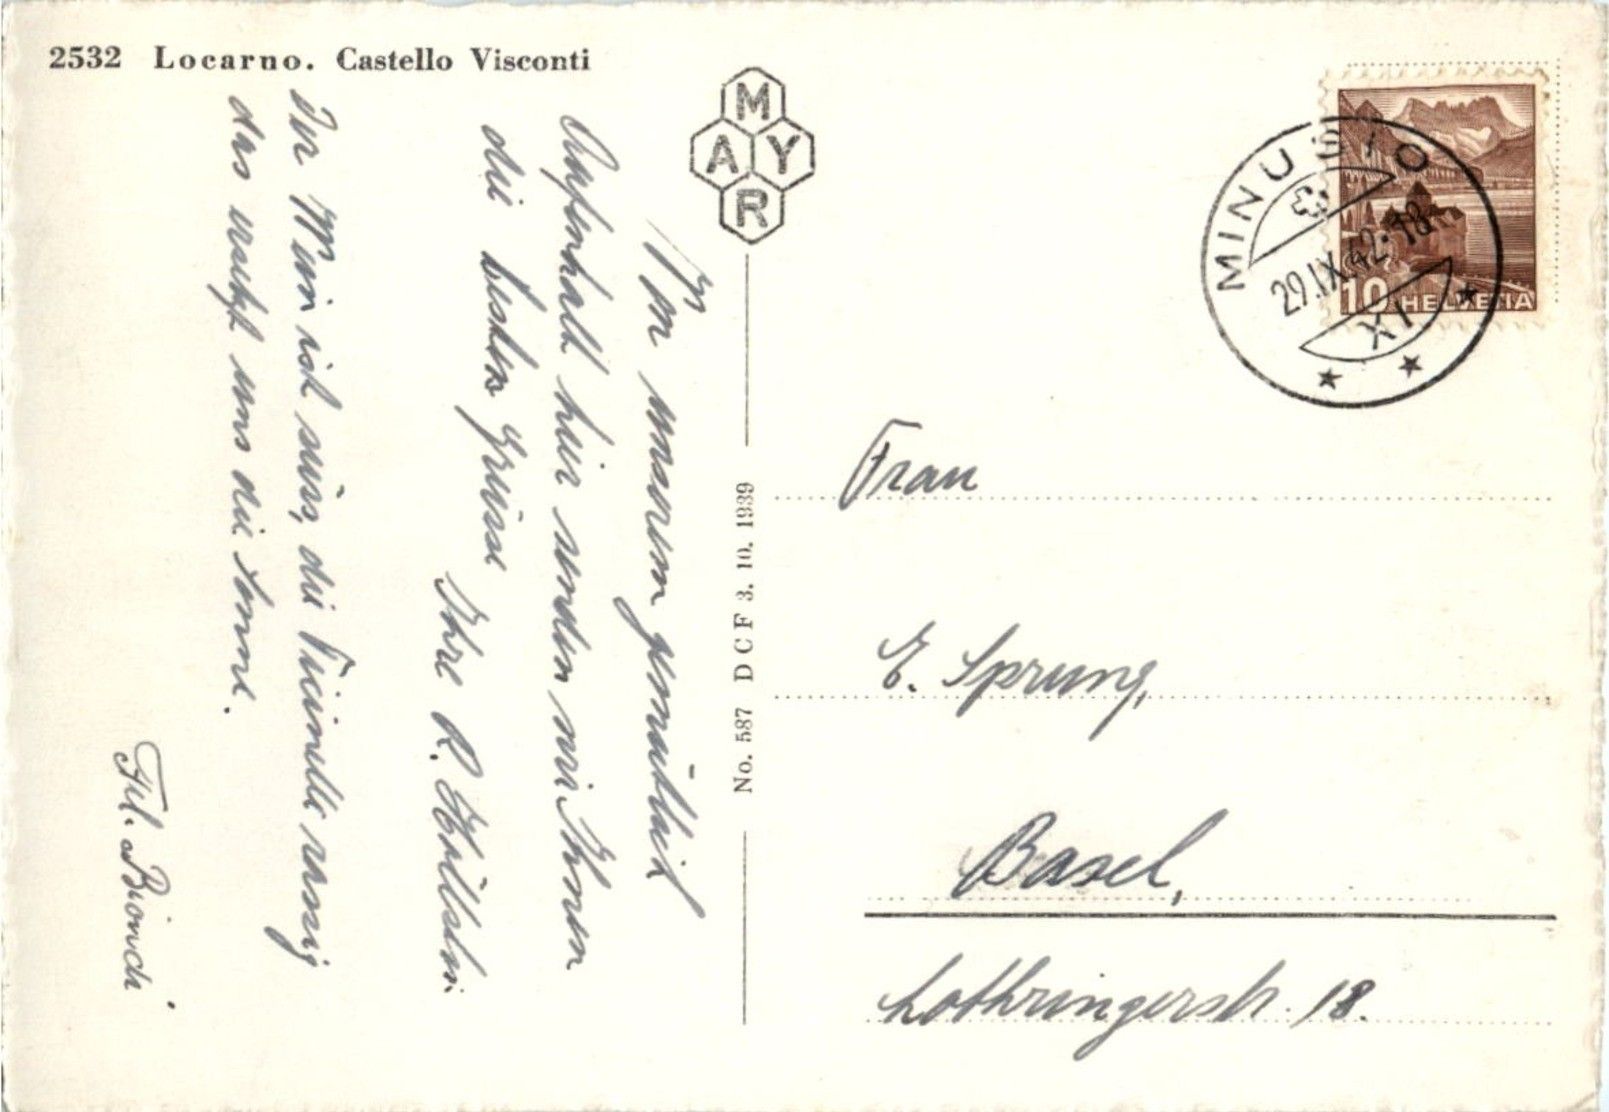 2532 Locarno. Castello Visconti
MAYR
Von unserem gemütlich
Aufenthalt hier senden wir Ihnen
die besten Grüsse
Ihre R. Hölstein
Der Wein ist süss, die Ticinelle rassig
das macht uns die Sonne.
Frl. Biondi
No. 587 DCF 3. 10. 1939
MINUSIO
29.IX.42.-18
XI
10 HELVETIA
Frau
E. Sprung,
Basel,
Lothringerstr. 18.